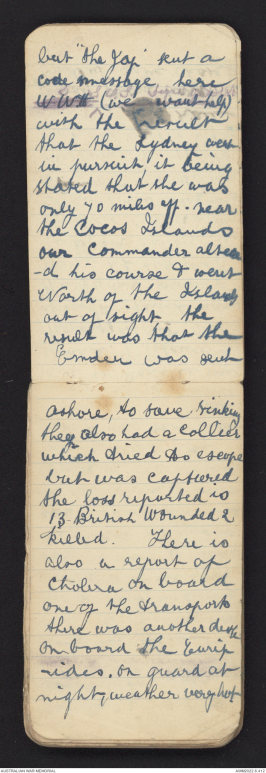 but "the Jap" sent a
code message here
WWH (we want help)
with the result
that the Sydney went
in pursuit it being
stated that she was
only 70 miles off. near
the Cocos Islands
our commander altere
-d his course & went
North of the Islands
out of sight the
result was that the
Emden was sent
ashore, to save sinking
they also had a collier
which tried to escape
but was captured
the loss reported is
13 British wounded 2
killed. There is
also a report of
Cholera on board
one of the transports
there was another death
on board the Eurip
-ides. on guard at
night, weather very hot
AUSTRALIAN WAR MEMORIAL